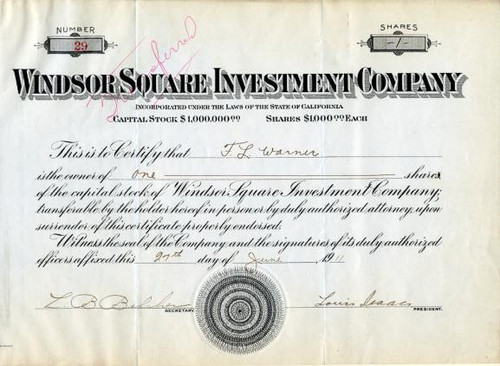 NUMBER
29
SHARES
-1-
Transferred
WINDSOR SQUARE INVESTMENT COMPANY
INCORPORATED UNDER THE LAWS OF THE STATE OF CALIFORNIA
CAPITAL STOCK $1,000,000.00 SHARES $1,000.00 EACH
This is to Certify that F L Warner
is the owner of one shares
of the capital stock of Windsor Square Investment Company;
transferable by the holder hereof in person or by duly authorized attorney, upon
surrender of this certificate properly endorsed.
Witness the seal of the Company and the signatures of its duly authorized
officers affixed this 27th day of June 1911
L B
Louis Isaacs
SECRETARY
PRESIDENT.